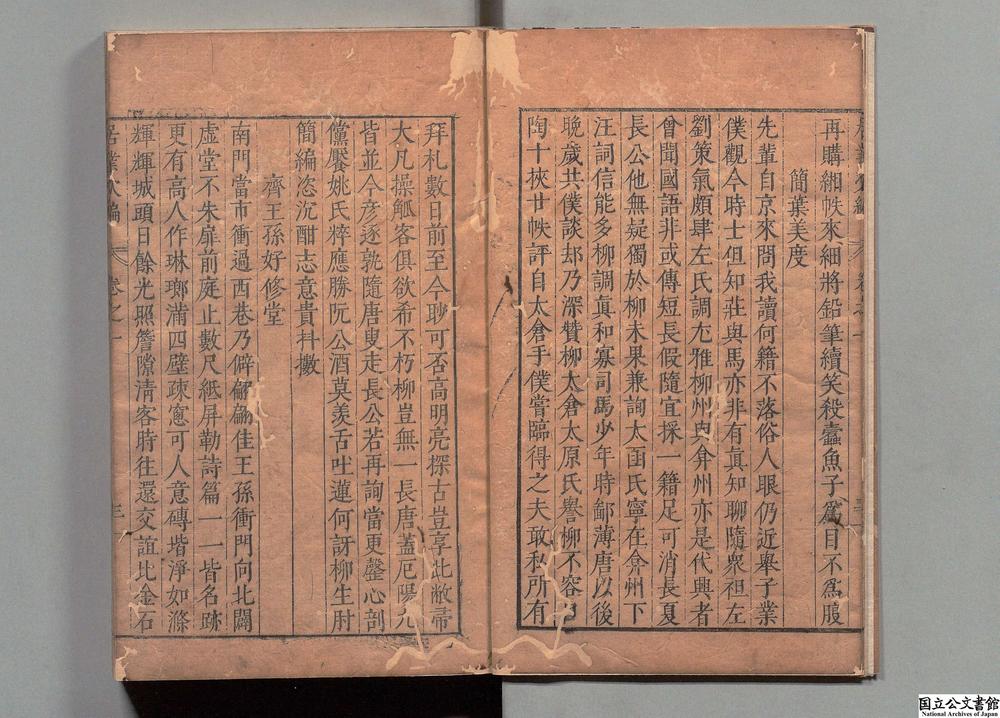 再購緗帙來細將鉛筆續笑殺蠹魚子為目不為腹
簡葉美度
先輩自京來問我讀何籍不落俗人眼仍近舉子業
僕觀今時士但知莊與馬亦非有真知聊隨衆袒左
劉策氣頗肆左氏調尢雅柳州與弇州亦是代興者
曾聞國語非或傳短長假隨宜採一籍足可消長夏
長公他無疑獨於柳未果兼詢太函氏寧在弇州下
汪詞信能多柳調真和寡司馬少年時鄙薄唐以後
晚歲共僕談却乃深贊柳太倉太原氏譽柳不容口
陶十挾廿帙評自太倉手僕嘗臨得之夫敢私所有
拜札數日前至今聊可否高明亮探古豈享此敝帚
大凡操觚客俱欲希不朽柳豈無一長唐蓋厄陽九
皆並今彥逐孰隨唐叟走長公若再詢當更罄心剖
儻饜姚氏粹應勝阮公酒莫羨舌吐蓮何訝柳生肘
簡編恣沉酣志意貴抖擻
齊王孫好修堂
南門當市衝過西巷乃僻翩翩佳王孫衝門向北闢
虛堂不朱扉前庭止數尺紙屏勒詩篇一一皆名跡
更有高人作琳瑯滿四壁疎窻可人意磚堦淨如滌
輝輝城頭日餘光照簷隙清客時往還交誼比金石
卷之一
三
国立公文書館
National Archives of Japan